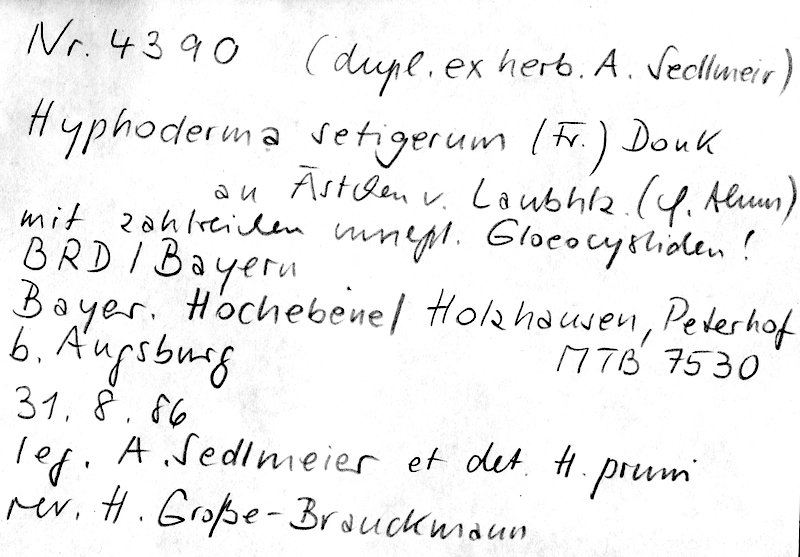 Nr. 4390 (dupl. ex herb. A. Sedlmeir)
Hyphoderma setigerum (Fr.) Donk
an Ästchen v. Laubhlz. (cf. Alnus)
mit zahlreichen unsept. Gloeocystiden!
BRD / Bayern
Bayer. Hochebene / Holzhausen, Peterhof
b. Augsburg MTB 7530
31. 8. 86
leg. A. Sedlmeier et det. H. pruni
rev. H. Große-Brauckmann